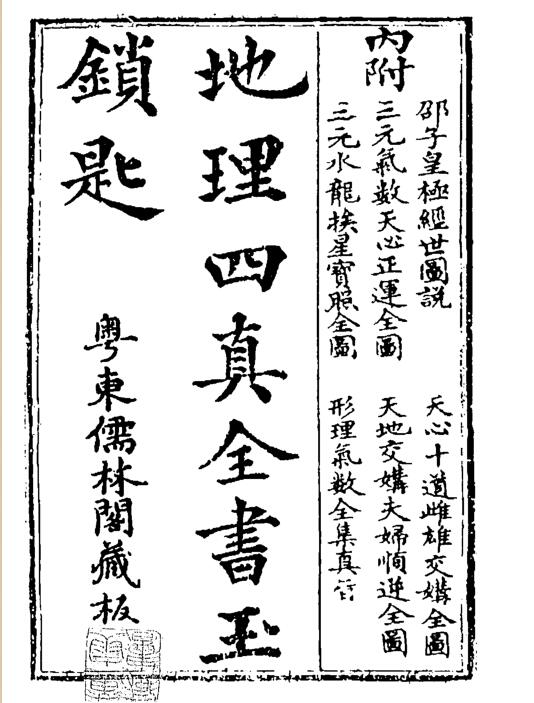 內附
邵子皇極經世圖說
天心十道雌雄交媾全圖
三元氣数天心正運全圖
天地交媾夫婦順逆全圖
三元水龍挨星寶照全圖
形理氣数全集真
地理四真全書玉
鎖匙
粤東儒林閣藏板